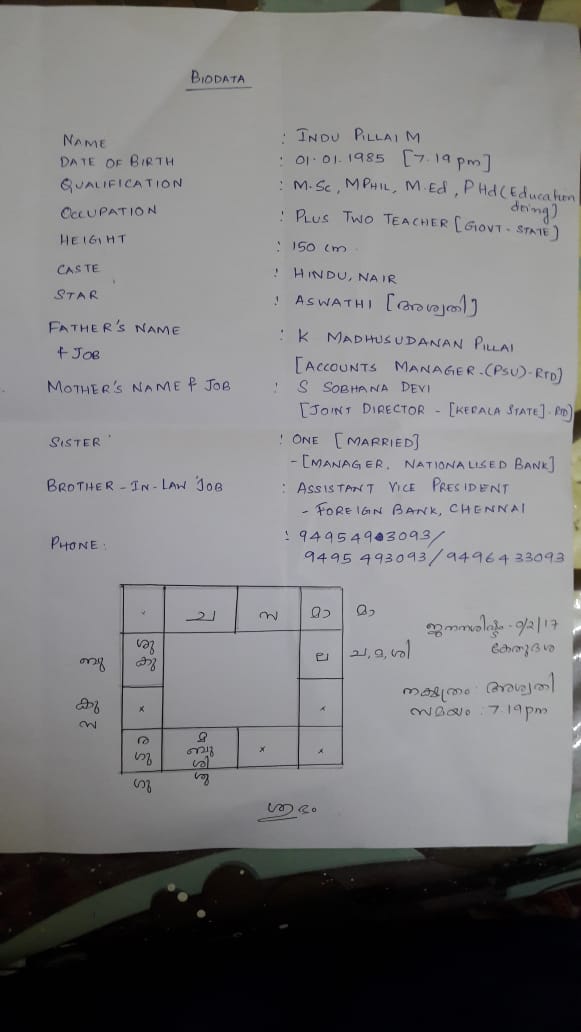 BIODATA
NAME : INDU PILLAI M
DATE OF BIRTH : 01.01.1985 [7.19 pm]
QUALIFICATION : M.Sc, MPHIL, M.Ed, PHd (Education doing)
OCCUPATION : PLUS TWO TEACHER [GOVT-STATE]
HEIGHT : 150 cm
CASTE : HINDU, NAIR
STAR : ASWATHI [അശ്വതി]
FATHER'S NAME : K MADHUSUDANAN PILLAI
& JOB [ACCOUNTS MANAGER-(PSU)-RTD]
MOTHER'S NAME & JOB : S SOBHANA DEVI
[JOINT DIRECTOR - [KERALA STATE]-RTD]
SISTER : ONE [MARRIED]
- [MANAGER, NATIONALISED BANK]
BROTHER-IN-LAW JOB : ASSISTANT VICE PRESIDENT
- FOREIGN BANK, CHENNAI
PHONE : 9495493093/
9495 493093/9496433093
x ച സ മാ മാ
ശു
ബു കു ല ച, മ, ശി
കു x x
സ
ര മ x x
ഗു ബു
ശി
ഗു ശു
ജനനശിഷ്ടം - 9/2/17
കേതുദശ
നക്ഷത്രം : അശ്വതി
സമയം : 7.19pm
ശുഭം